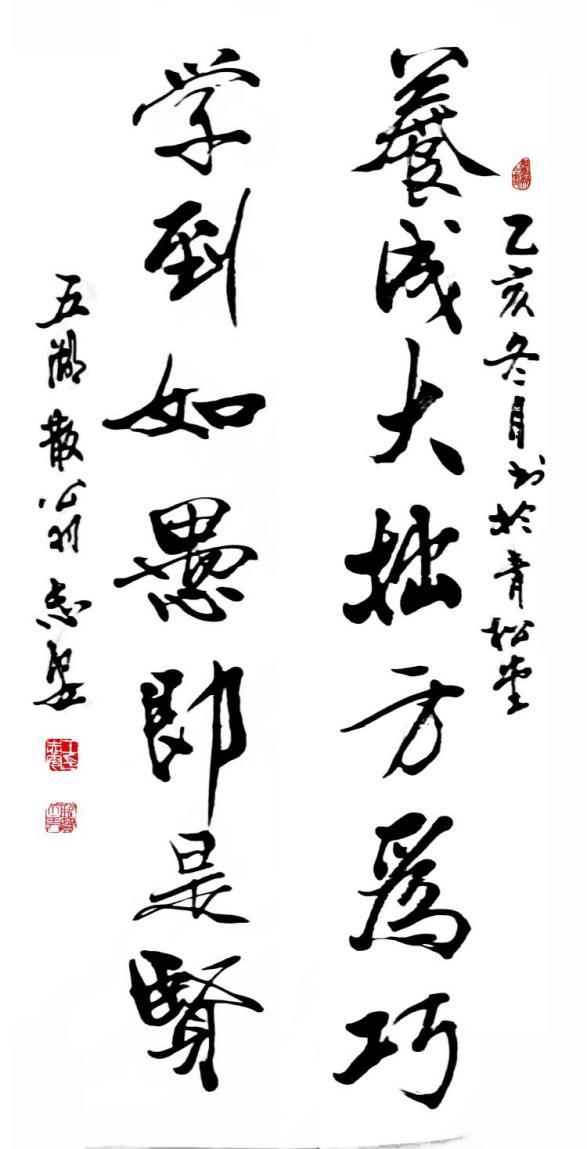 乙亥冬月书於青松堂
養成大拙方爲巧
学到如愚即是賢
五湖散翁志